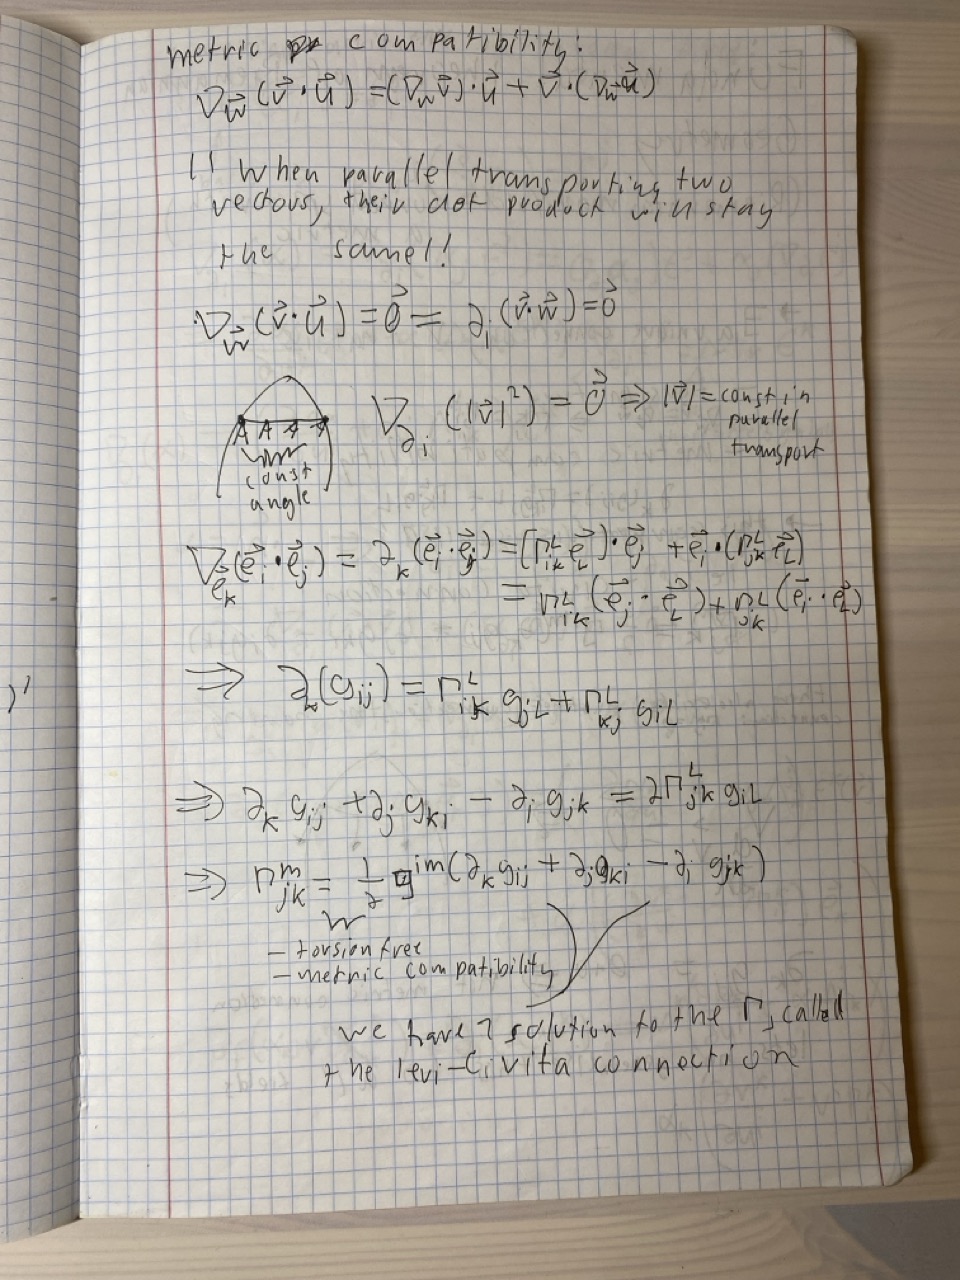 metric compatibility:
∇_w⃗ (v⃗·u⃗) = (∇_w v⃗)·u⃗ + v⃗·(∇_w⃗ u⃗)
!! When parallel transporting two
vectors, their dot product will stay
the same!!
∇_w⃗ (v⃗·u⃗) = 0⃗ = ∂_i (v⃗·w⃗) = 0⃗
∇_∂i (|v⃗|²) = 0⃗ ⇒ |v⃗| = const in
parallel
transport
const
angle
∇_e⃗k (e⃗_i·e⃗_j) = ∂_k (e⃗_i·e⃗_j) = [Γ^L_ik e⃗_L]·e⃗_j + e⃗_i·(Γ^L_jk e⃗_L)
= Γ^L_ik (e⃗_j·e⃗_L) + Γ^L_jk (e⃗_i·e⃗_L)
⇒ ∂_k (g_ij) = Γ^L_ik g_jL + Γ^L_kj g_iL
⇒ ∂_k g_ij + ∂_j g_ki − ∂_i g_jk = 2Γ^L_jk g_iL
⇒ Γ^m_jk = 1/2 g^im (∂_k g_ij + ∂_j g_ki − ∂_i g_jk)
- torsion free
- metric compatibility
we have 1 solution to the Γ, called
the levi-Civita connection